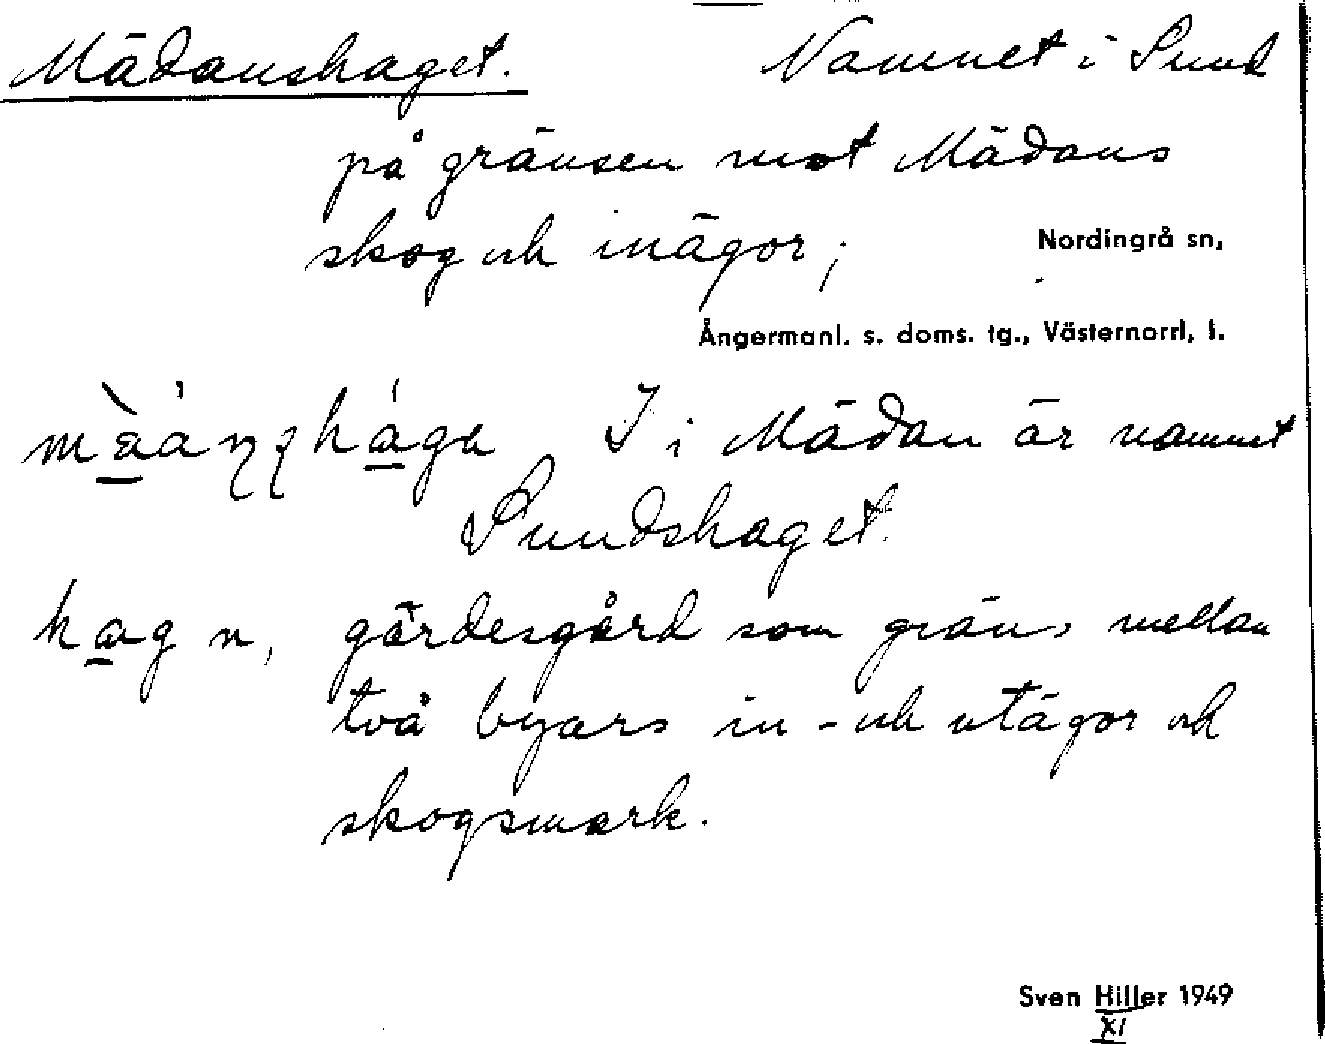 Mädanshaget. Namnet i Sund
på gränsen mot Mädans
skog och inägor;
Nordingrå sn,
Ångermanl. s. doms. tg., Västernorrl, l.
I i Mädan är namnet
Sundshaget.
hag n, gärdesgård som gräns mellan
två byars in- och utägor och
skogsmark.
Sven Hiller 1949
XI